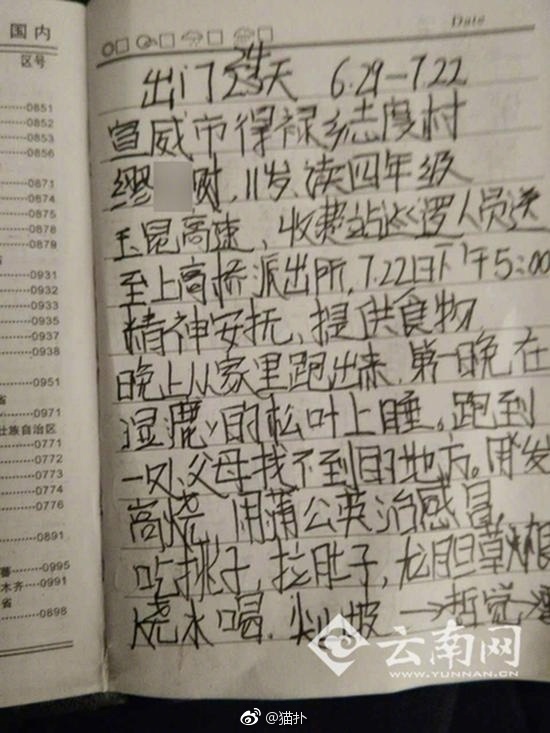 国内
区号
0851
0852
0853
0856
0871
0874
0875
0878
0879
0931
0932
0933
0935
0937
0938
0951
省
0971
壮族自治区
0771
0772
0773
0774
0776
0891
0995
木齐 0991
省
0898
Date
出门23天 6.29-7.22
宣威市得禄乡志度村
缪 财,11岁,读四年级
玉昆高速,收费站巡逻人员送
至上高桥派出所,7.22日下午5:00
精神安抚,提供食物
晚上从家里跑出来,第一晚在
湿漉々的松叶上睡。跑到
一处父母找不到的地方。用发
高烧,用蒲公英治感冒,
吃挑子,拉肚子,龙胆草根
烧水喝.尖山坡→哲觉→
云南网
WWW.YUNNAN.CN
@猫扑